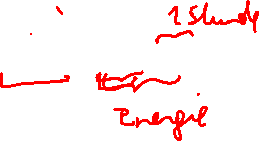 1 Stunde
Energie